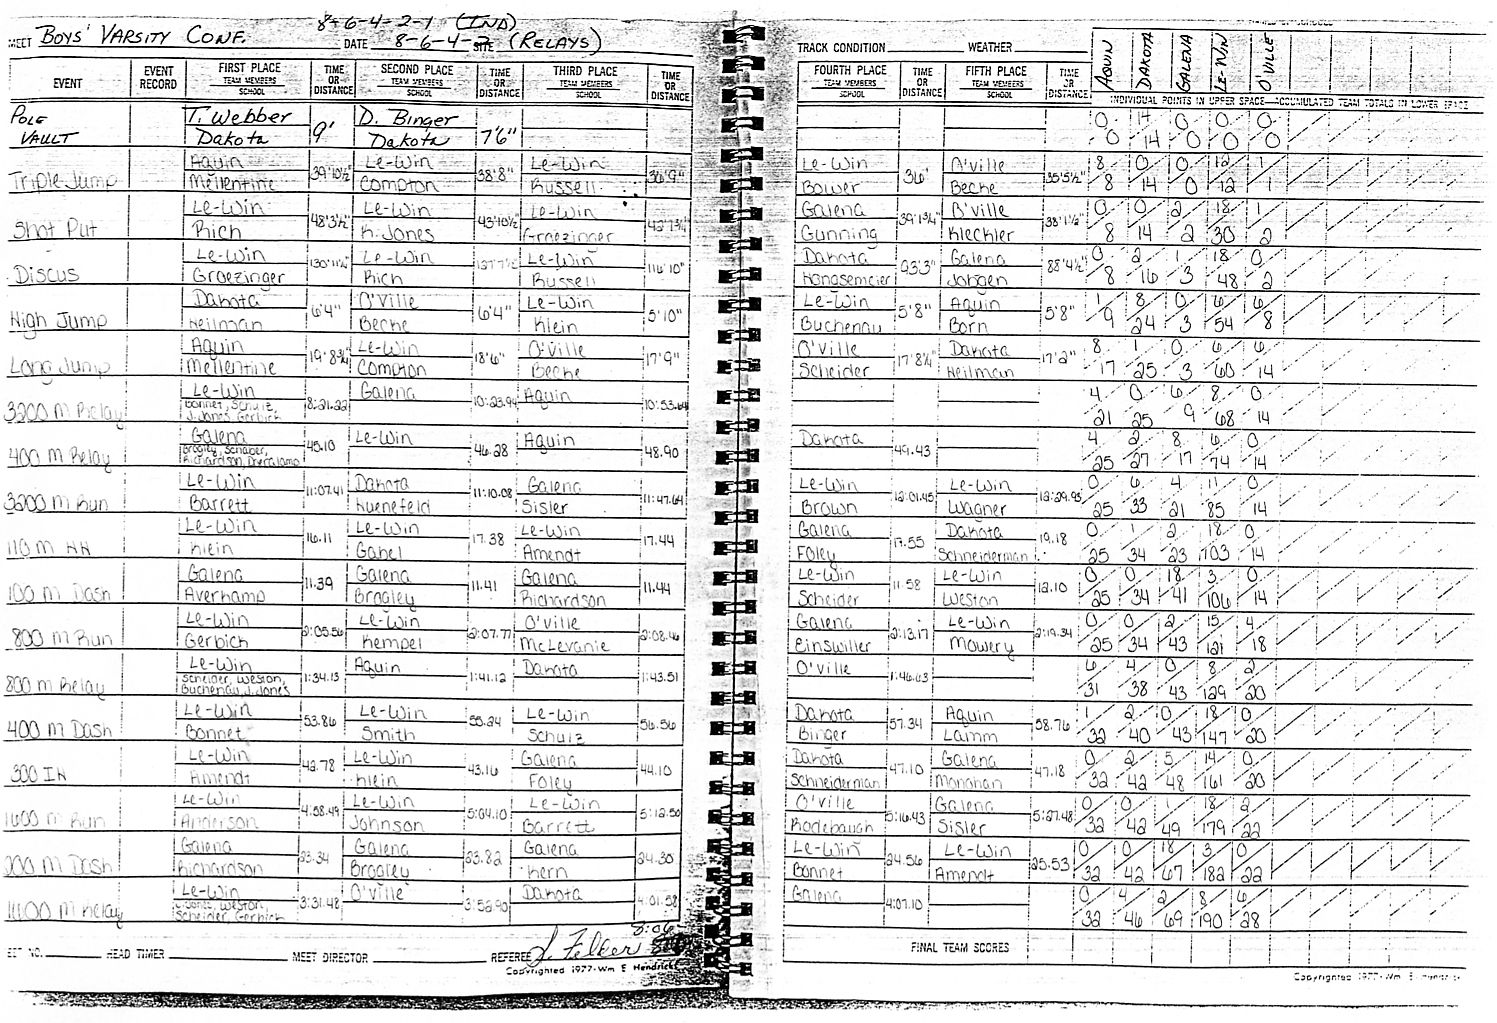 8-6-4-2-1 (IND)
MEET Boys' Varsity Conf. DATE 8-6-4-2 SITE (RELAYS)
EVENT EVENT RECORD FIRST PLACE TEAM MEMBERS SCHOOL TIME OR DISTANCE SECOND PLACE TEAM MEMBERS SCHOOL TIME OR DISTANCE THIRD PLACE TEAM MEMBERS SCHOOL TIME OR DISTANCE
Pole Vault T. Webber Dakota 9' D. Binger Dakota 7'6"
Triple Jump Aquin Mellentine 39'10½" Le-Win Compton 38'8" Le-Win Russell 36'9"
Shot Put Le-Win Rich 48'3½" Le-Win K. Jones 43'10½" Le-Win Groezinger
Discus Le-Win Groezinger Le-Win Rich Le-Win Russell 116'10"
High Jump Dakota Heilman 6'4" O'Ville Becke 6'4" Le-Win Klein 5'10"
Long Jump Aquin Mellentine 19'8¾" Le-Win Compton 18'6" O'Ville Becke 17'9"
3200 M Relay Le-Win Bonnet, Schulz, J. Jones, Gerbich 8:21.22 Galena 10:23.94 Aquin 10:53.64
400 M Relay Galena Brogley, Schaber, Richardson, Averkamp 45.10 Le-Win 46.28 Aquin 48.90
3200 M Run Le-Win Barrett 11:07.41 Dakota Kuenefeld 11:10.08 Galena Sisler 11:47.64
110 M HH Le-Win Klein 16.11 Le-Win Gabel 17.38 Le-Win Amendt 17.44
100 M Dash Galena Averkamp 11.39 Galena Brogley 11.41 Galena Richardson 11.44
800 M Run Le-Win Gerbich 2:05.56 Le-Win Kempel 2:07.77 O'Ville McLevanie 2:08.16
800 M Relay Le-Win Scheider, Weston, Buchenau, J. Jones 1:34.13 Aquin 1:41.12 Dakota 1:43.51
400 M Dash Le-Win Bonnet 53.86 Le-Win Smith 55.24 Le-Win Schulz 56.56
300 IH Le-Win Amendt 42.78 Le-Win Klein 43.16 Galena Foley 44.10
1600 M Run Le-Win Anderson 4:58.49 Le-Win Johnson 5:04.10 Le-Win Barrett 5:12.50
200 M Dash Galena Richardson 23.34 Galena Brogley 23.82 Galena Kern 24.30
1600 M Relay Le-Win J. Jones, Weston, Scheider, Gerbich 3:31.48 O'Ville 3:56.90 Dakota 4:01.58
8:06
MEET NO. HEAD TIMER MEET DIRECTOR REFEREE J. Felker
Copyrighted 1977-Wm E Hendricks
TRACK CONDITION WEATHER
FOURTH PLACE TEAM MEMBERS SCHOOL TIME OR DISTANCE FIFTH PLACE TEAM MEMBERS SCHOOL TIME OR DISTANCE Aquin Dakota Galena Le-Win O'Ville
INDIVIDUAL POINTS IN UPPER SPACE—ACCUMULATED TEAM TOTALS IN LOWER SPACE
0 14 0 0 0
0 14 0 0 0
Le-Win Bower 36' O'Ville Becke 35'5½" 8 0 0 12 1
8 14 0 12 1
Galena Gunning 39'1¾" O'Ville Kleckler 38'1½" 0 0 2 18 1
8 14 2 30 2
Dakota Hangsemeier 93'3" Galena Jobgen 88'4½" 0 2 1 18 0
8 16 3 48 2
Le-Win Buchenau 5'8" Aquin Born 5'8" 1 8 0 6 6
9 24 3 54 8
O'Ville Scheider 17'8¼" Dakota Heilman 17'2" 8 1 0 6 6
17 25 3 60 14
4 0 6 8 0
21 25 9 68 14
Dakota 49.43 4 2 8 6 0
25 27 17 74 14
Le-Win Brown 12:01.45 Le-Win Wagner 12:29.95 0 6 4 11 0
25 33 21 85 14
Galena Foley 17.55 Dakota Schneiderman 19.18 0 1 2 18 0
25 34 23 103 14
Le-Win Scheider 11.58 Le-Win Weston 12.10 0 0 18 3 0
25 34 41 106 14
Galena Einswiller 2:13.17 Le-Win Mowery 2:19.34 0 0 2 15 4
25 34 43 121 18
O'Ville 1:46.03 6 4 0 8 2
31 38 43 129 20
Dakota Binger 57.34 Aquin Lamm 58.76 1 2 0 18 0
32 40 43 147 20
Dakota Schneiderman 47.10 Galena Monahan 47.18 0 2 5 14 0
32 42 48 161 20
O'Ville Rodebaugh 5:16.43 Galena Sisler 5:27.48 0 0 1 18 2
32 42 49 179 22
Le-Win Bonnet 24.56 Le-Win Amendt 25.53 0 0 18 3 0
32 42 67 182 22
Galena 4:07.10 0 4 2 8 6
32 46 69 190 28
FINAL TEAM SCORES
Copyrighted 1977-Wm E Hendricks